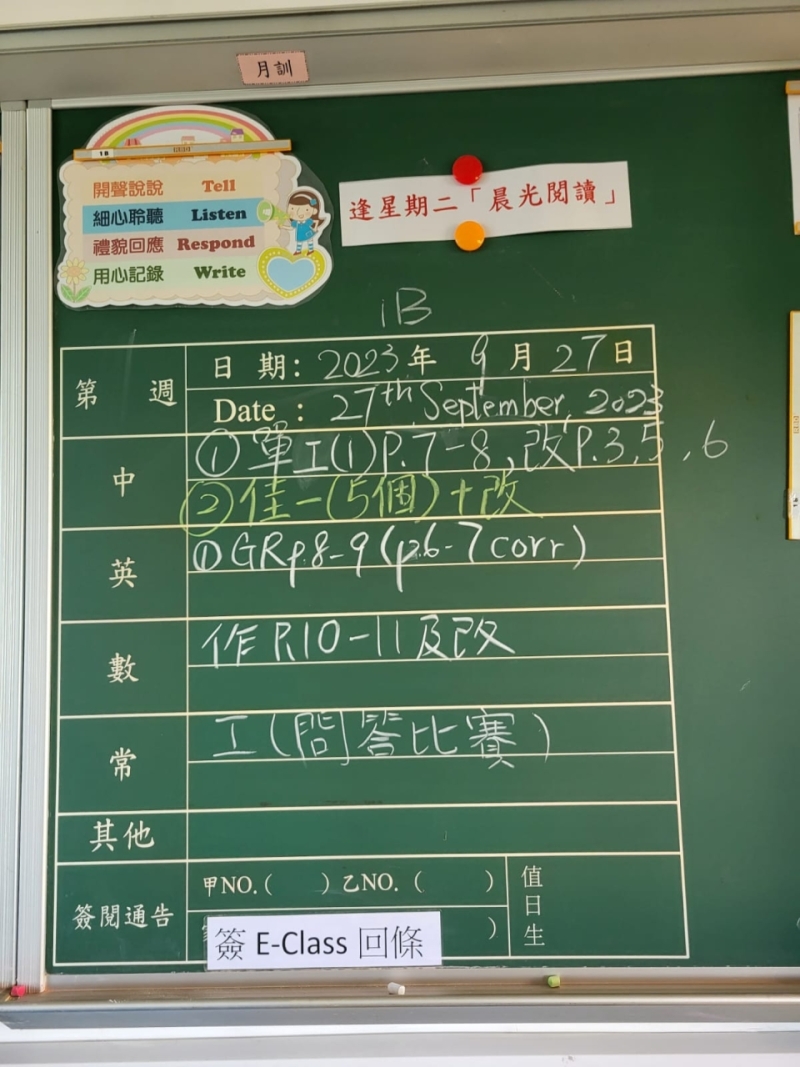 月訓
1B
開聲說說 Tell
細心聆聽 Listen
禮貌回應 Respond
用心記錄 Write
逢星期二「晨光閱讀」
1B
第 週
日 期: 2023年 9月27日
Date : 27th September, 2023
中
①單工(1)P.7-8,改P.3,5,6
②佳一(5個)+改
英
①GRp.8-9(p.6-7corr)
數
作P.10-11及改
常
工(問答比賽)
其他
簽閱通告
甲NO.( )乙NO.( )
)
簽 E-Class 回條
值日生